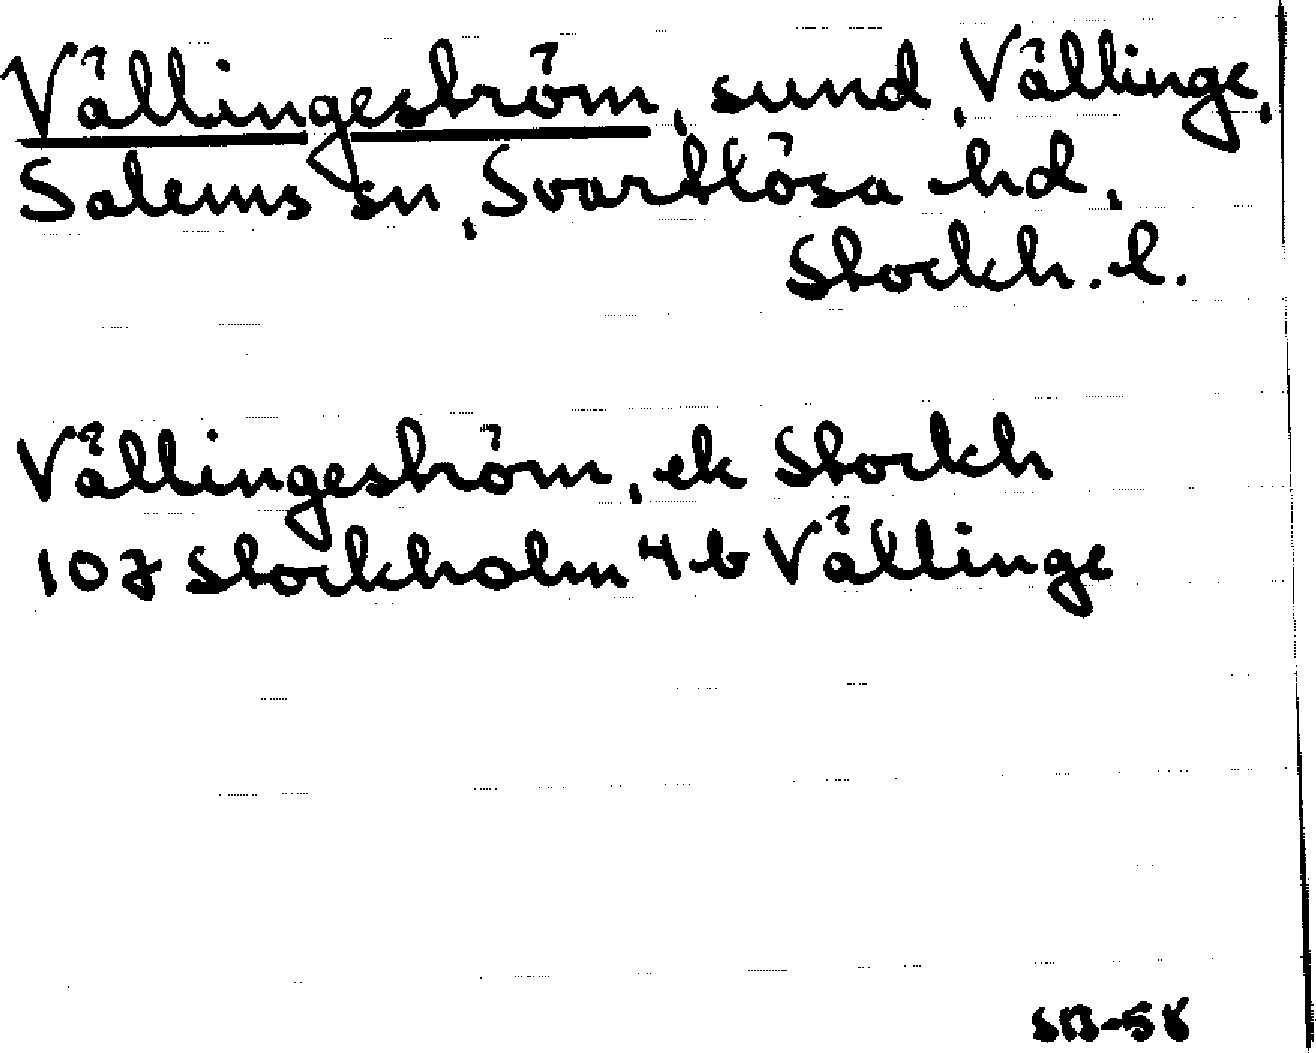 Vällingeström, sund, Vällinge,
Salems sn, Svartlösa hd,
Stockh. l.
Vällingeström, ek Stockh
10J Stockholm 4 b Vällinge
SB-58